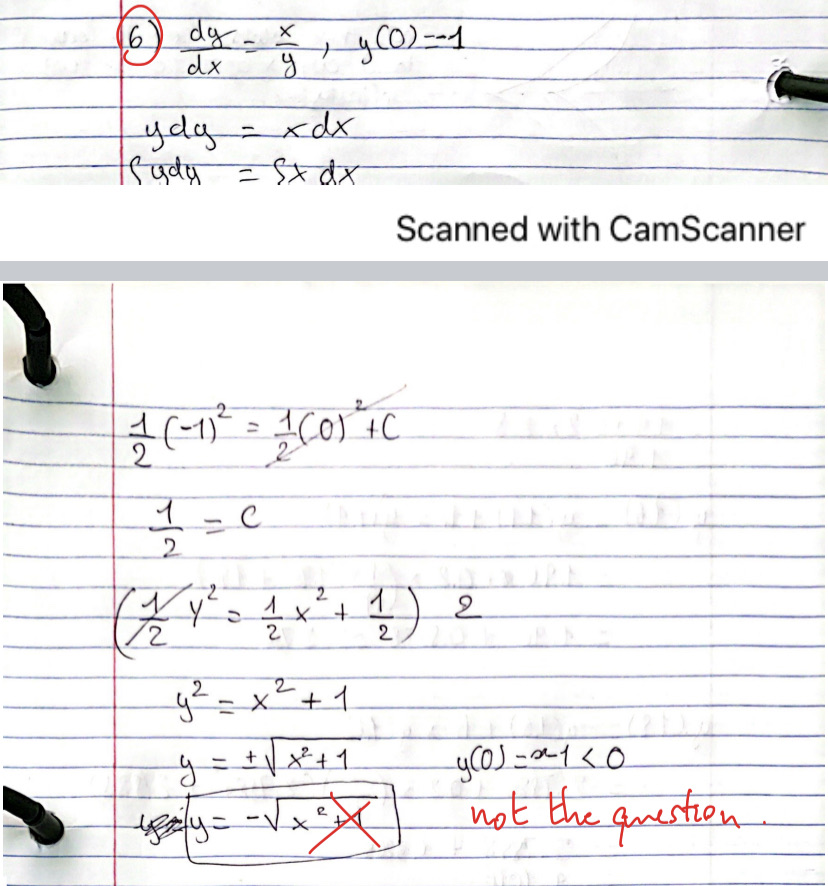 6) dy/dx = x/y , y(0)=-1
y dy = x dx
∫ y dy = ∫ x dx
Scanned with CamScanner
1/2 (-1)² = 1/2 (0)² + C
1/2 = C
(1/2 y² = 1/2 x² + 1/2) 2
y² = x² + 1
y = ±√(x²+1) y(0) = -1 < 0
y = -√(x²+1) not the question.